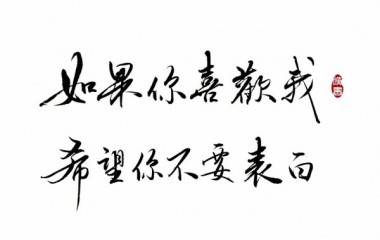 如果你喜歡我
希望你不要表白